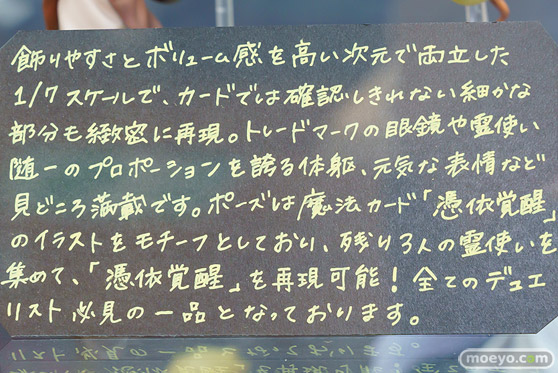 飾りやすさとボリューム感を高い次元で両立した
1/7スケールで、カードでは確認しきれない細かな
部分も緻密に再現。トレードマークの眼鏡や霊使い
随一のプロポーションを誇る体躯、元気な表情など
見どころ満載です。ポーズは魔法カード「憑依覚醒」
のイラストをモチーフとしており、残り3人の霊使いを
集めて、「憑依覚醒」を再現可能！全てのデュエ
リスト必見の一品となっております。
moeyo.com